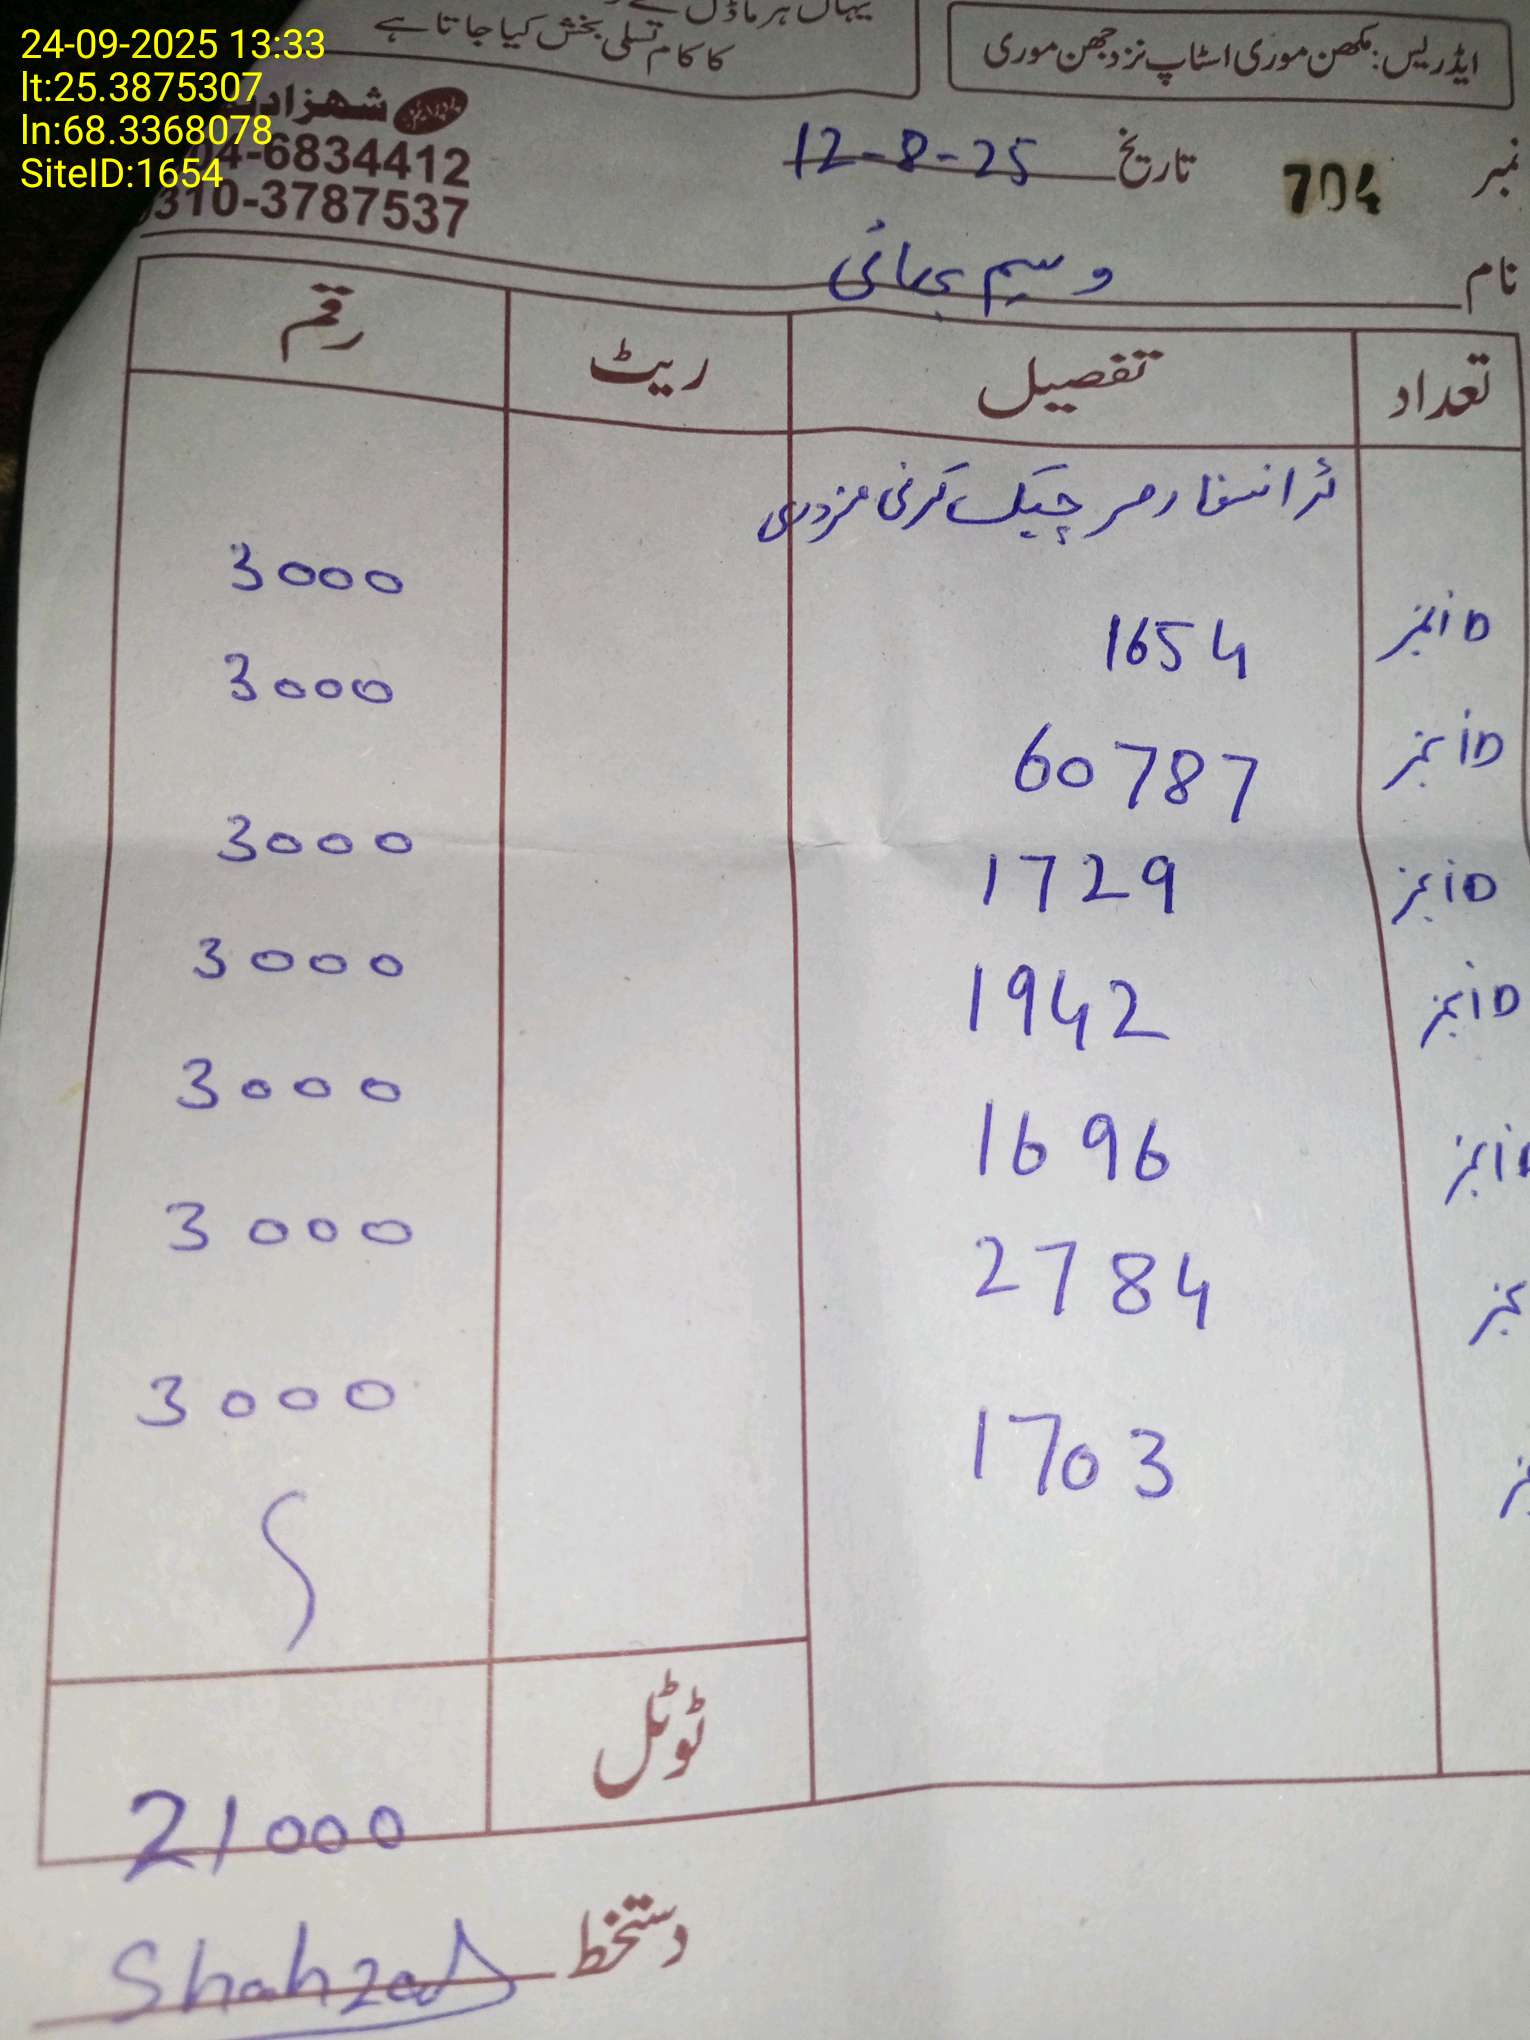 24-09-2025 13:33
lt:25.3875307
ln:68.3368078
SiteID:1654
یہاں ہر ماڈل
کا کام تسلی بخش کیا جاتا ہے
ایڈریس: مکھن موری اسٹاپ نزد جھن موری
شهزاد
04-6834412
0310-3787537
نمبر 704 تاریخ 12-8-25
نام وسیم بھائی
تعداد تفصیل ریٹ رقم
ٹرانسفارمر چیک کرنی مزدوری
iD نمبر 1654 3000
iD نمبر 60787 3000
iD نمبر 1729 3000
iD نمبر 1942 3000
iD نمبر 1696 3000
نمبر 2784 3000
1703 3000
ٹوٹل 21000
دستخط Shahzad